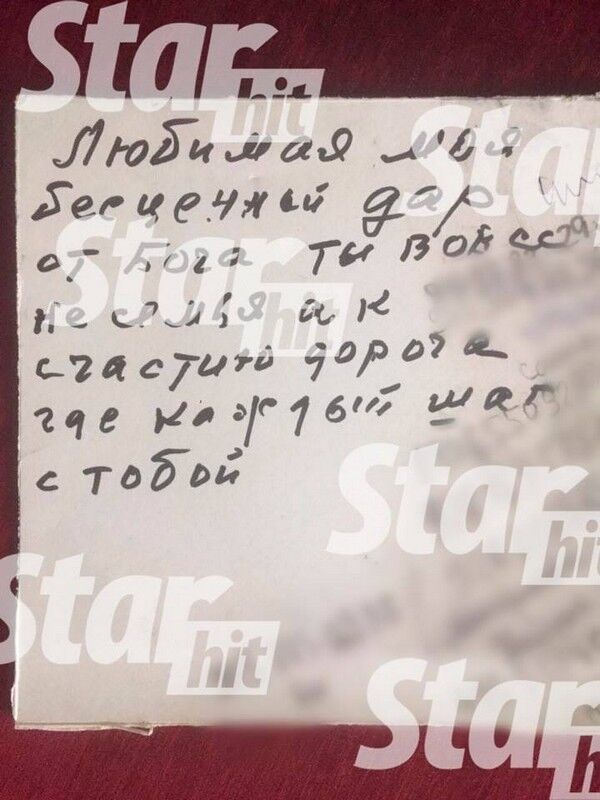 Star hit
Любимая моя
бесценный дар
от Бога ты вовсе
Star hit
не семья а к
счастию дорога
где каждый шаг
с тобой
Star hit
Star hit
Star